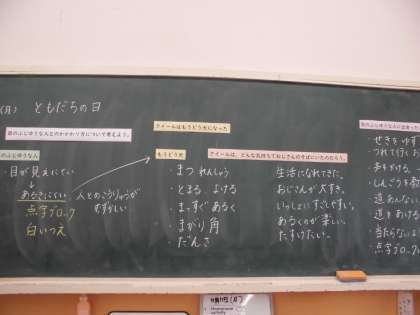 (月) ともだちの日
目のふじゆうな人とのかかわり方について考えよう。
のふじゆうな人
・目が見えにくい
↓
あるきにくい
点字ブロック
白いつえ
人とのこうりゅうが
むずかしい
クイールはもうどう犬になった
もうどう犬
・まつ れんしゅう
・とまる、よける
・まっすぐ あるく
・まがり角
・だんさ
クイールは、どんな気持ちでおじさんのそばにいたのだろう。
生活になれてきた。
おじさんが大すき。
いっしょにすごしやすい。
あるくのが楽しい。
たすけたい。
目のふじゆうな人に出会った
・せきをゆず
・つれて行くお
・しんごうを
・道あんない
・道をあける
・当たらないよ
・点字ブロック
11月17日(月)